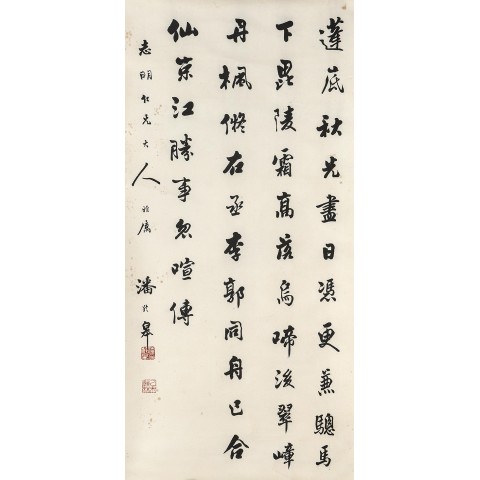 蓬底秋光盡日憑更兼驄馬
下毘陵霜高落烏啼後翠嶂
丹楓儗右丞李郭同舟已合
仙崇江勝事忽喧傳
志明仁兄大人雅屬
潘齡皋